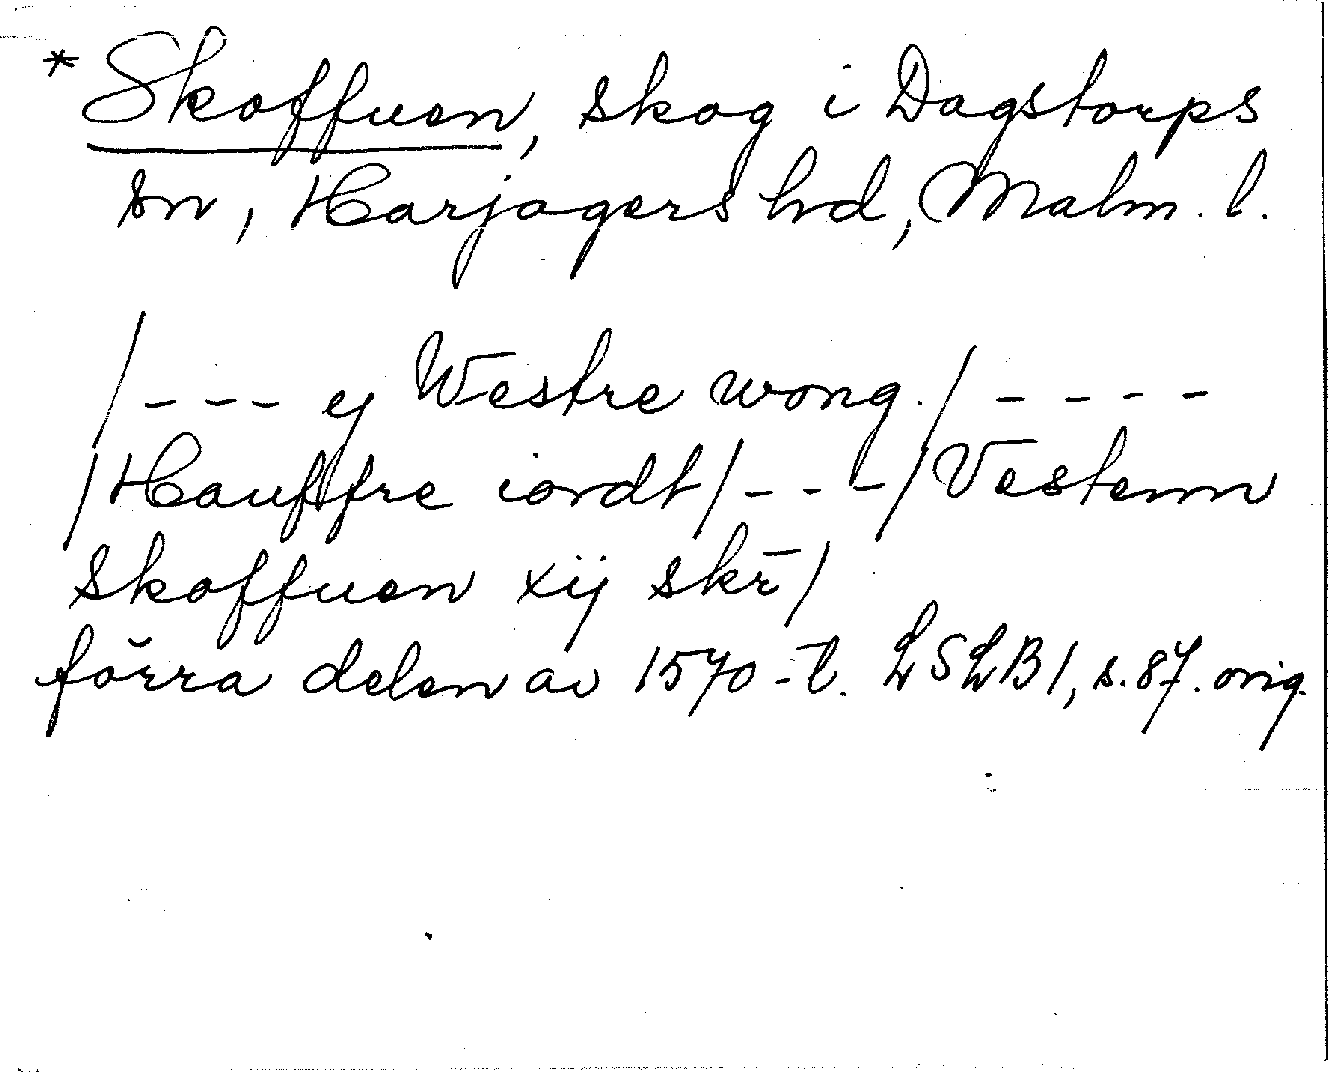 * Skoffuen, skog i Dagstorps
sn, Harjagers hd, Malm. l.
/--- ej Westre wong./----
/Hauffre iordt/---/Vestenn
skoffuen xij skr̄/
förra delen av 1570-t. LSLB1, s.87. orig.